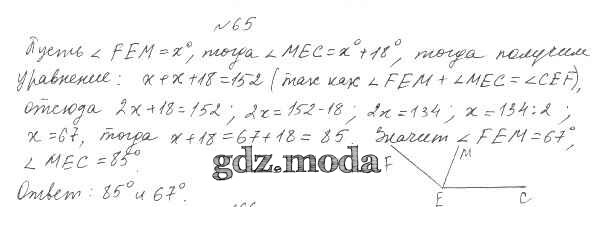 №65
Пусть ∠FEM=x°, тогда ∠MEC=x°+18°, тогда получим
уравнение: x+x+18=152 (так как ∠FEM+∠MEC=∠CEF),
отсюда 2x+18=152; 2x=152-18; 2x=134; x=134:2;
x=67, тогда x+18=67+18=85. Значит ∠FEM=67°,
∠MEC=85°.
gdz.moda
F
M
Ответ: 85° и 67°.
E
C